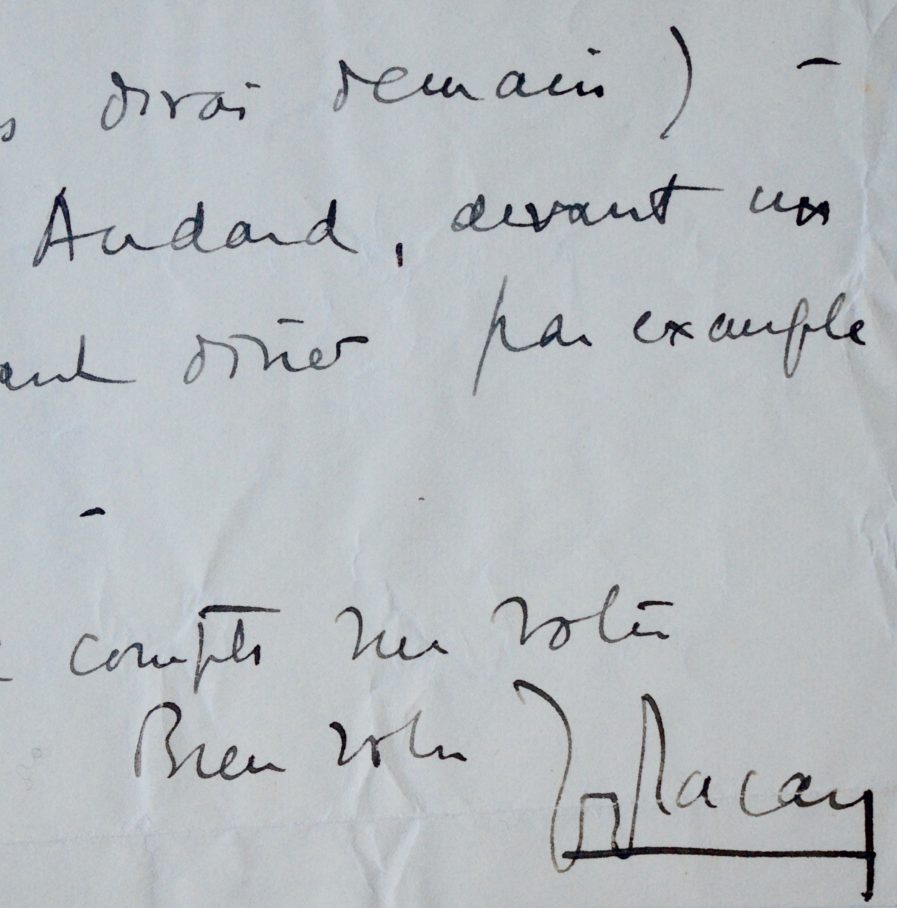 s dirai demain) -
Audard, devant un
ant dîner par exemple
-
compte sur votre
Bien votre J Lacan